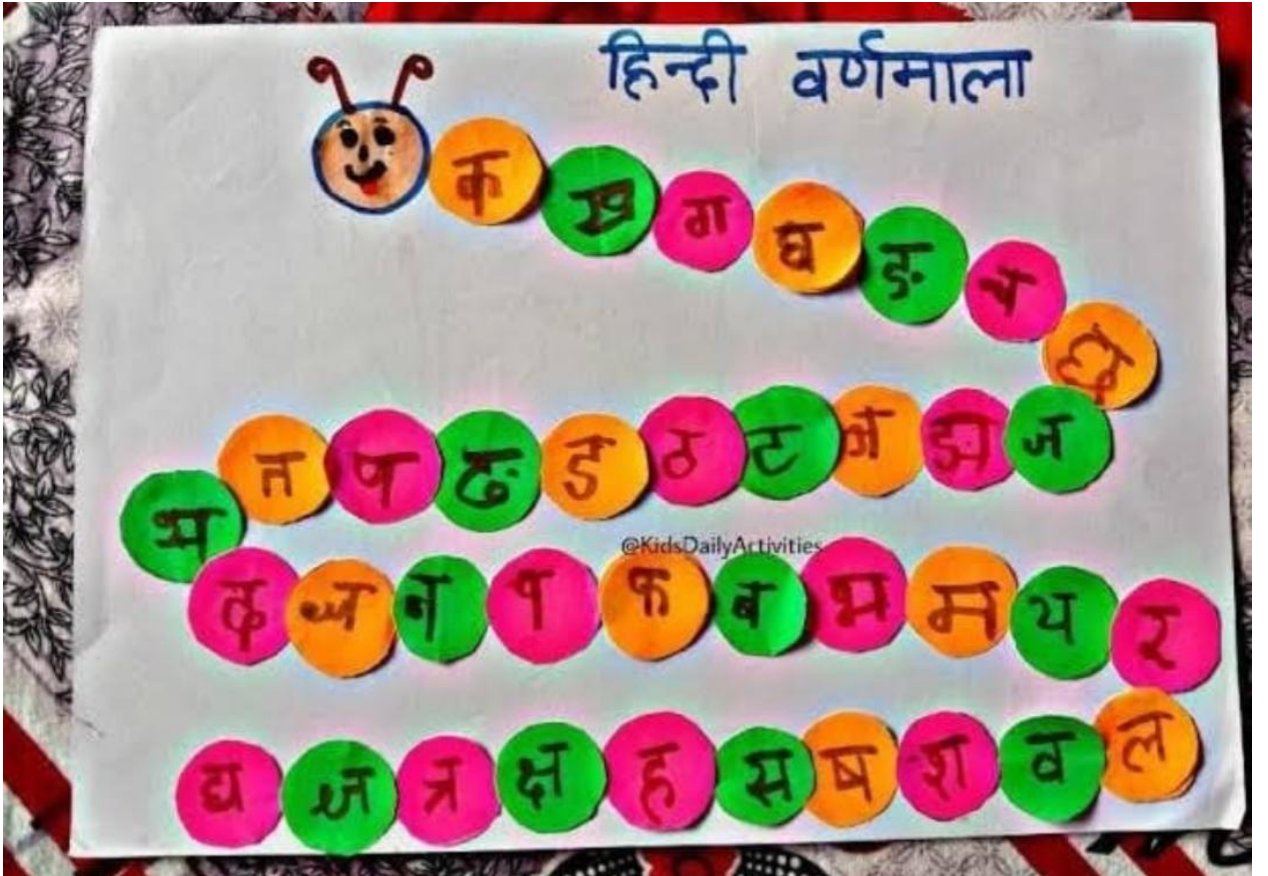 हिन्दी वर्णमाला
क ख ग घ ङ च छ
ज झ ञ ट ठ ड ढ ण त थ
@KidsDailyActivities
द ध न प फ ब भ म य र
ल व श ष स ह क्ष त्र ज्ञ द्य